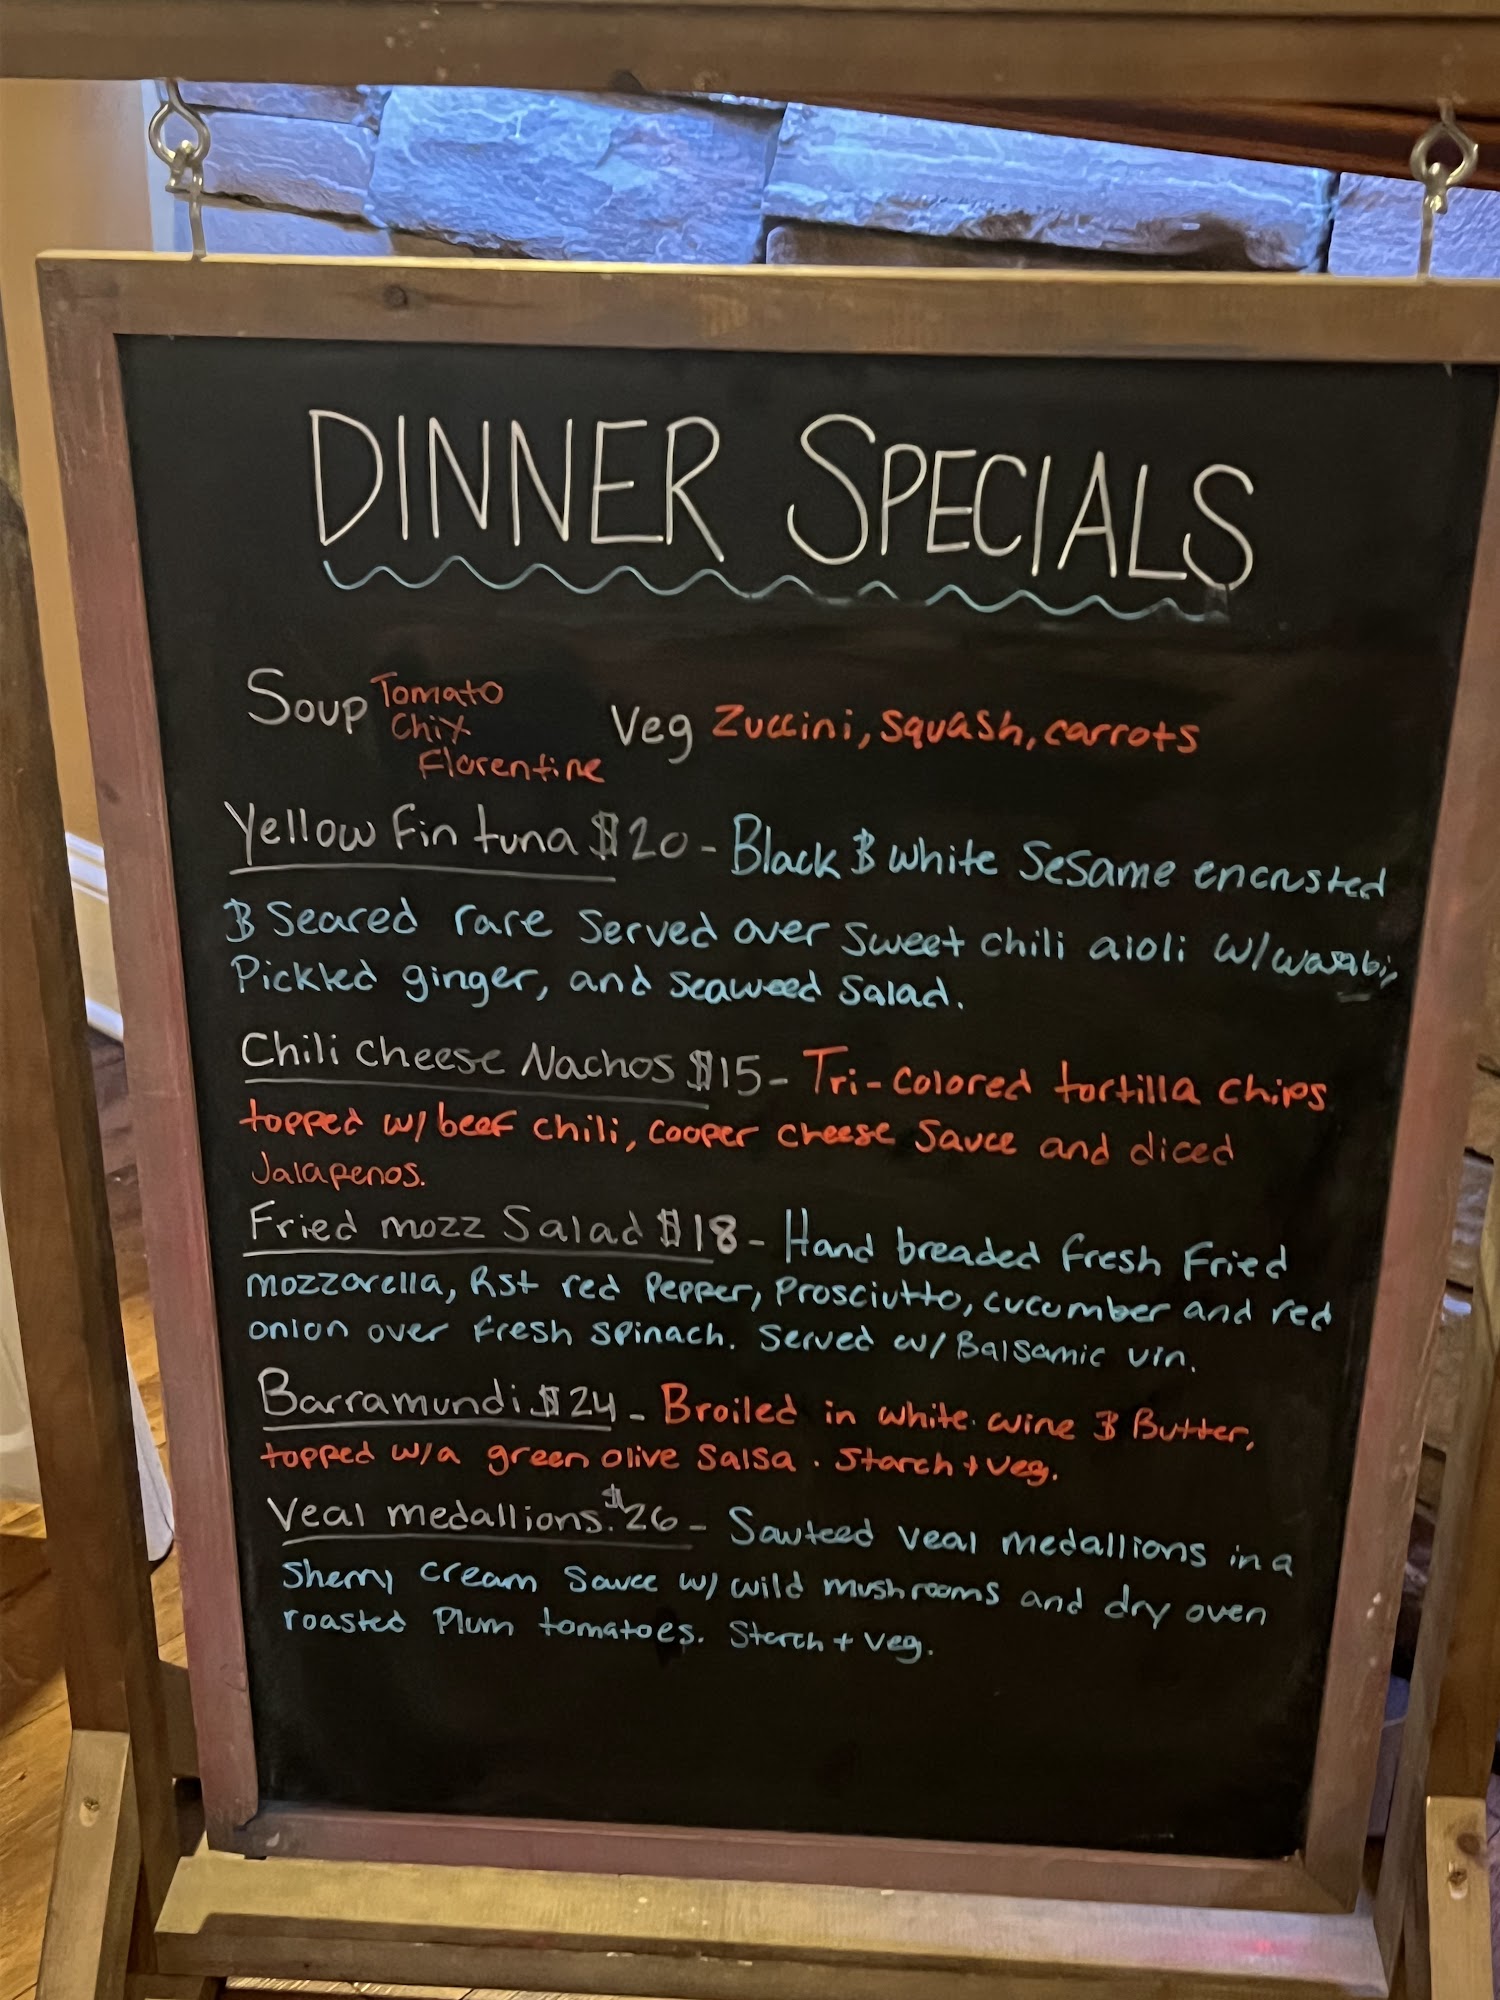 DINNER SPECIALS
Soup Tomato Chix Florentine Veg Zuccini, squash, carrots
Yellow Fin tuna $20 - Black & white Sesame encrusted
& Seared rare Served over sweet chili aioli w/wasabi,
Pickled ginger, and seaweed salad.
Chili cheese Nachos $15 - Tri-colored tortilla chips
topped w/ beef chili, cooper cheese sauce and diced
Jalapenos.
Fried mozz Salad $18 - Hand breaded fresh Fried
mozzarella, Rst red Pepper, Prosciutto, cucumber and red
onion over fresh spinach. Served w/ Balsamic vin.
Barramundi $24 - Broiled in white wine & Butter,
topped w/a green olive salsa. Starch + veg.
Veal medallions. $26 - Sauteed veal medallions in a
Sherry cream sauce w/ wild mushrooms and dry oven
roasted Plum tomatoes. Starch + veg.